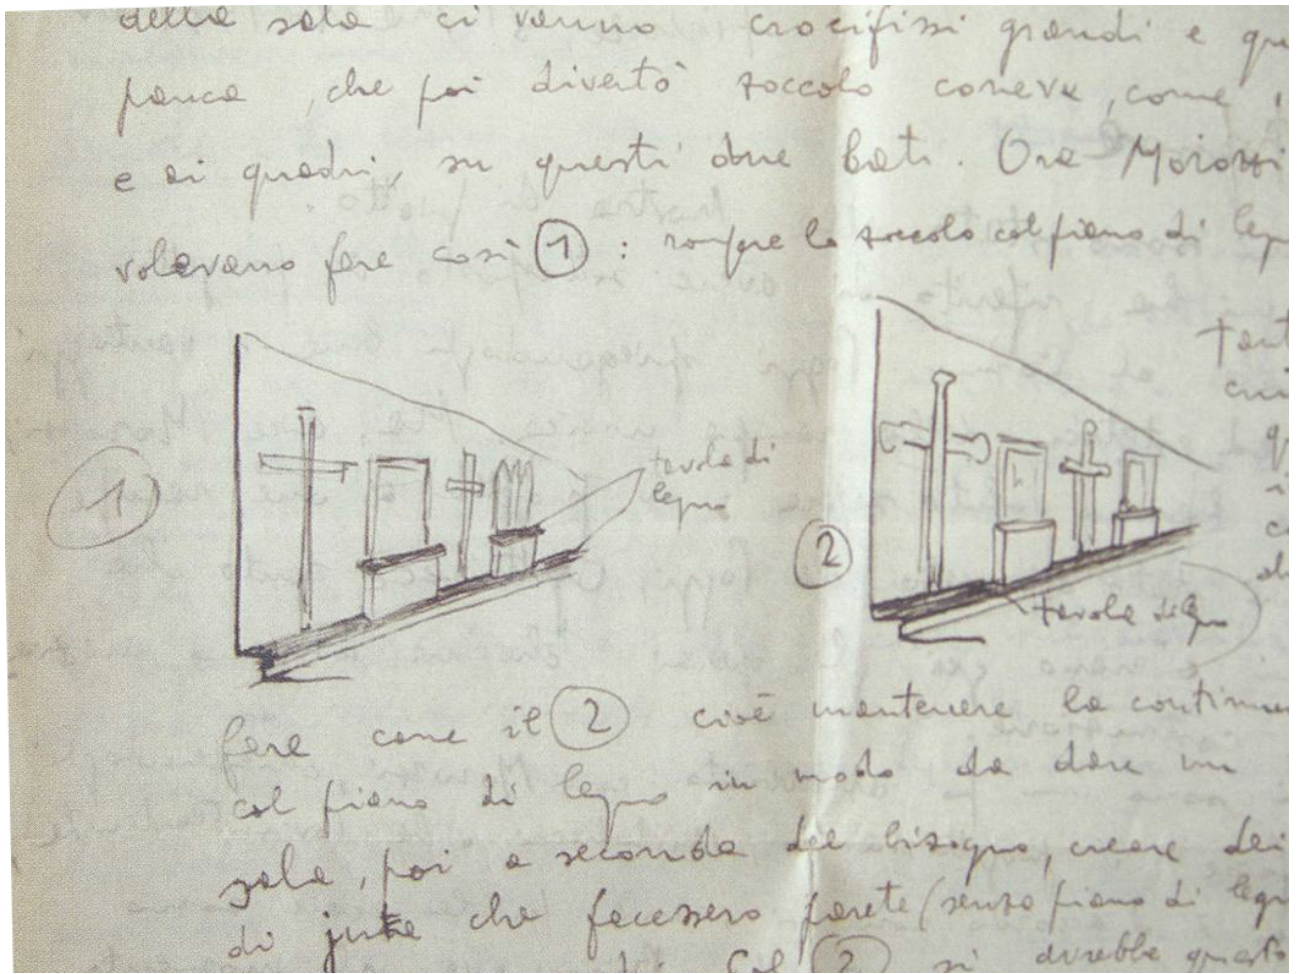 della sala ci vanno crocifissi grandi e qu
panca, che poi diventò zoccolo correva, come
e ai quadri, su questi due lati. Ora Morozzi
volevano fare così ① : rompere lo zoccolo col piano di leg
Tant
①
tavola di
legno
②
tavola di legno
fare come il ② cioè mantenere la continu
col piano di legno in modo da dare un
sala, poi a seconda del bisogno, creare dei
di jute che facessero parete (senza piano di leg
Col ② si avrebbe questo